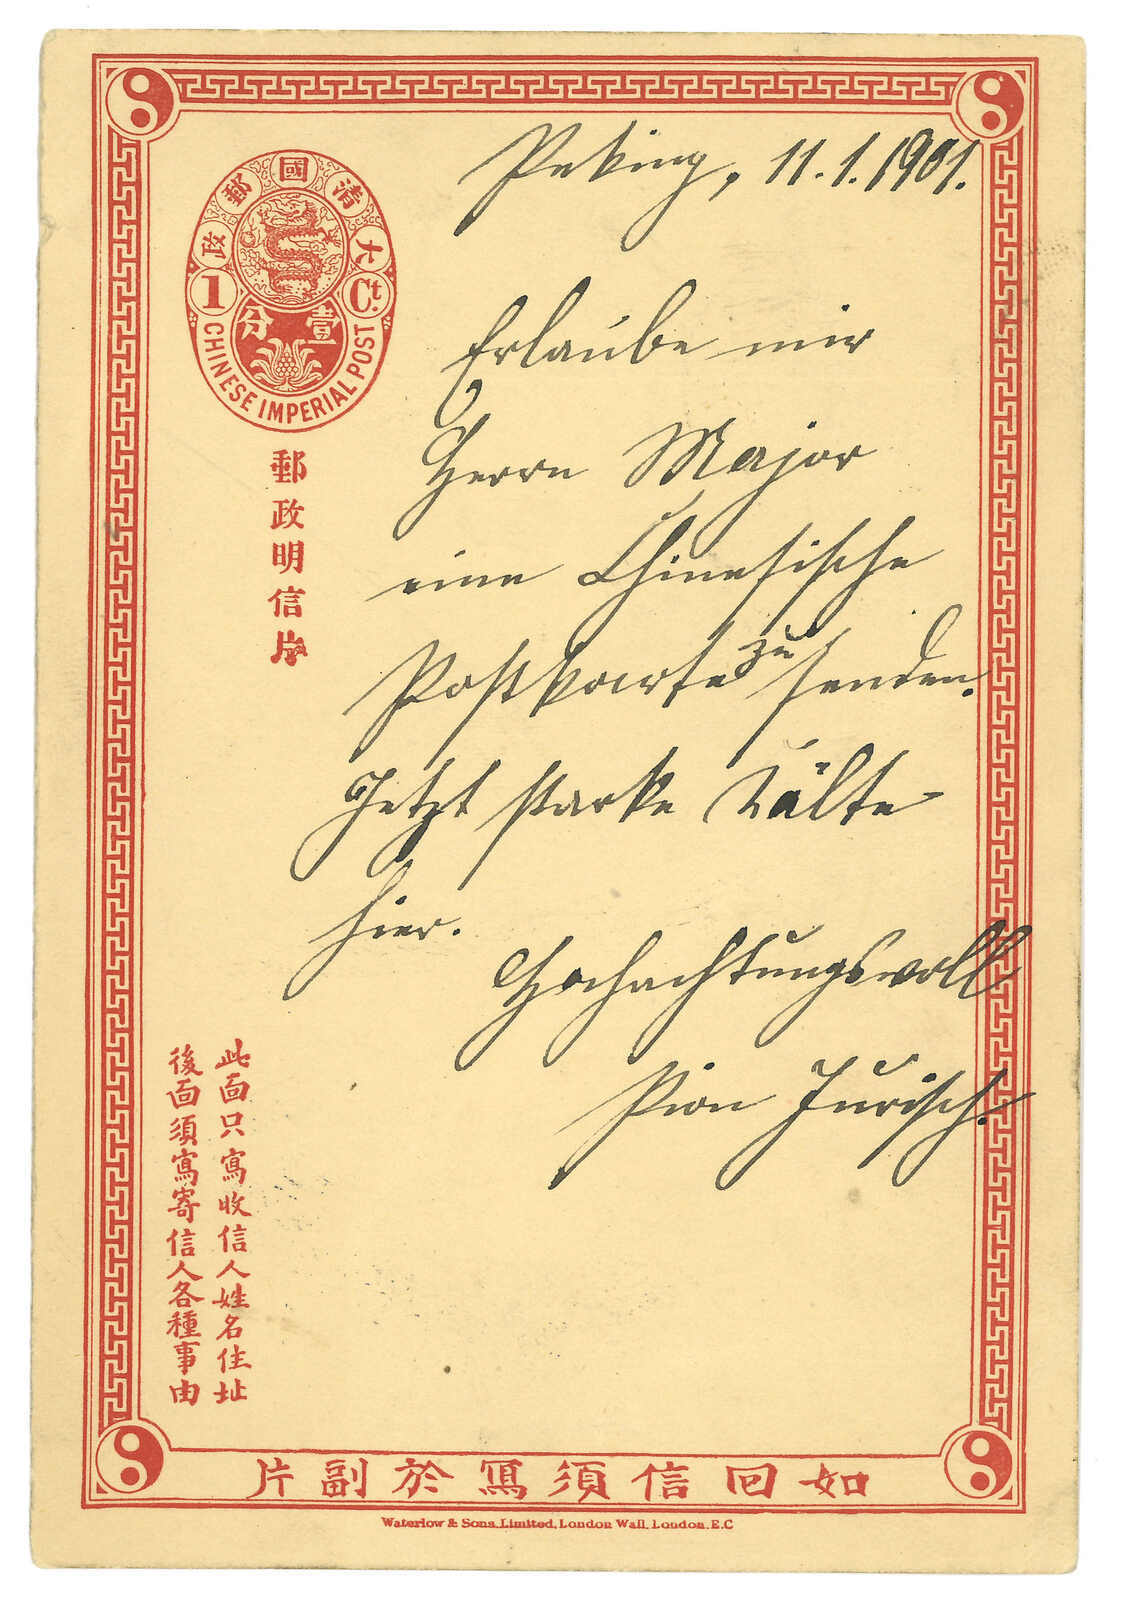 Peking, 11.1.1901.
大清國郵政
1 Ct.
壹分
CHINESE IMPERIAL POST
郵政明信片
Erlaube mir
Herrn Major
eine Chinesische
Postkarte zu senden.
Jetzt starke Kälte
hier.
Hochachtungsvoll
Pion Jurisch.
此面只寫收信人姓名住址
後面須寫寄信人各種事由
如回信須寫於副片
Waterlow & Sons, Limited, London Wall, London, E.C